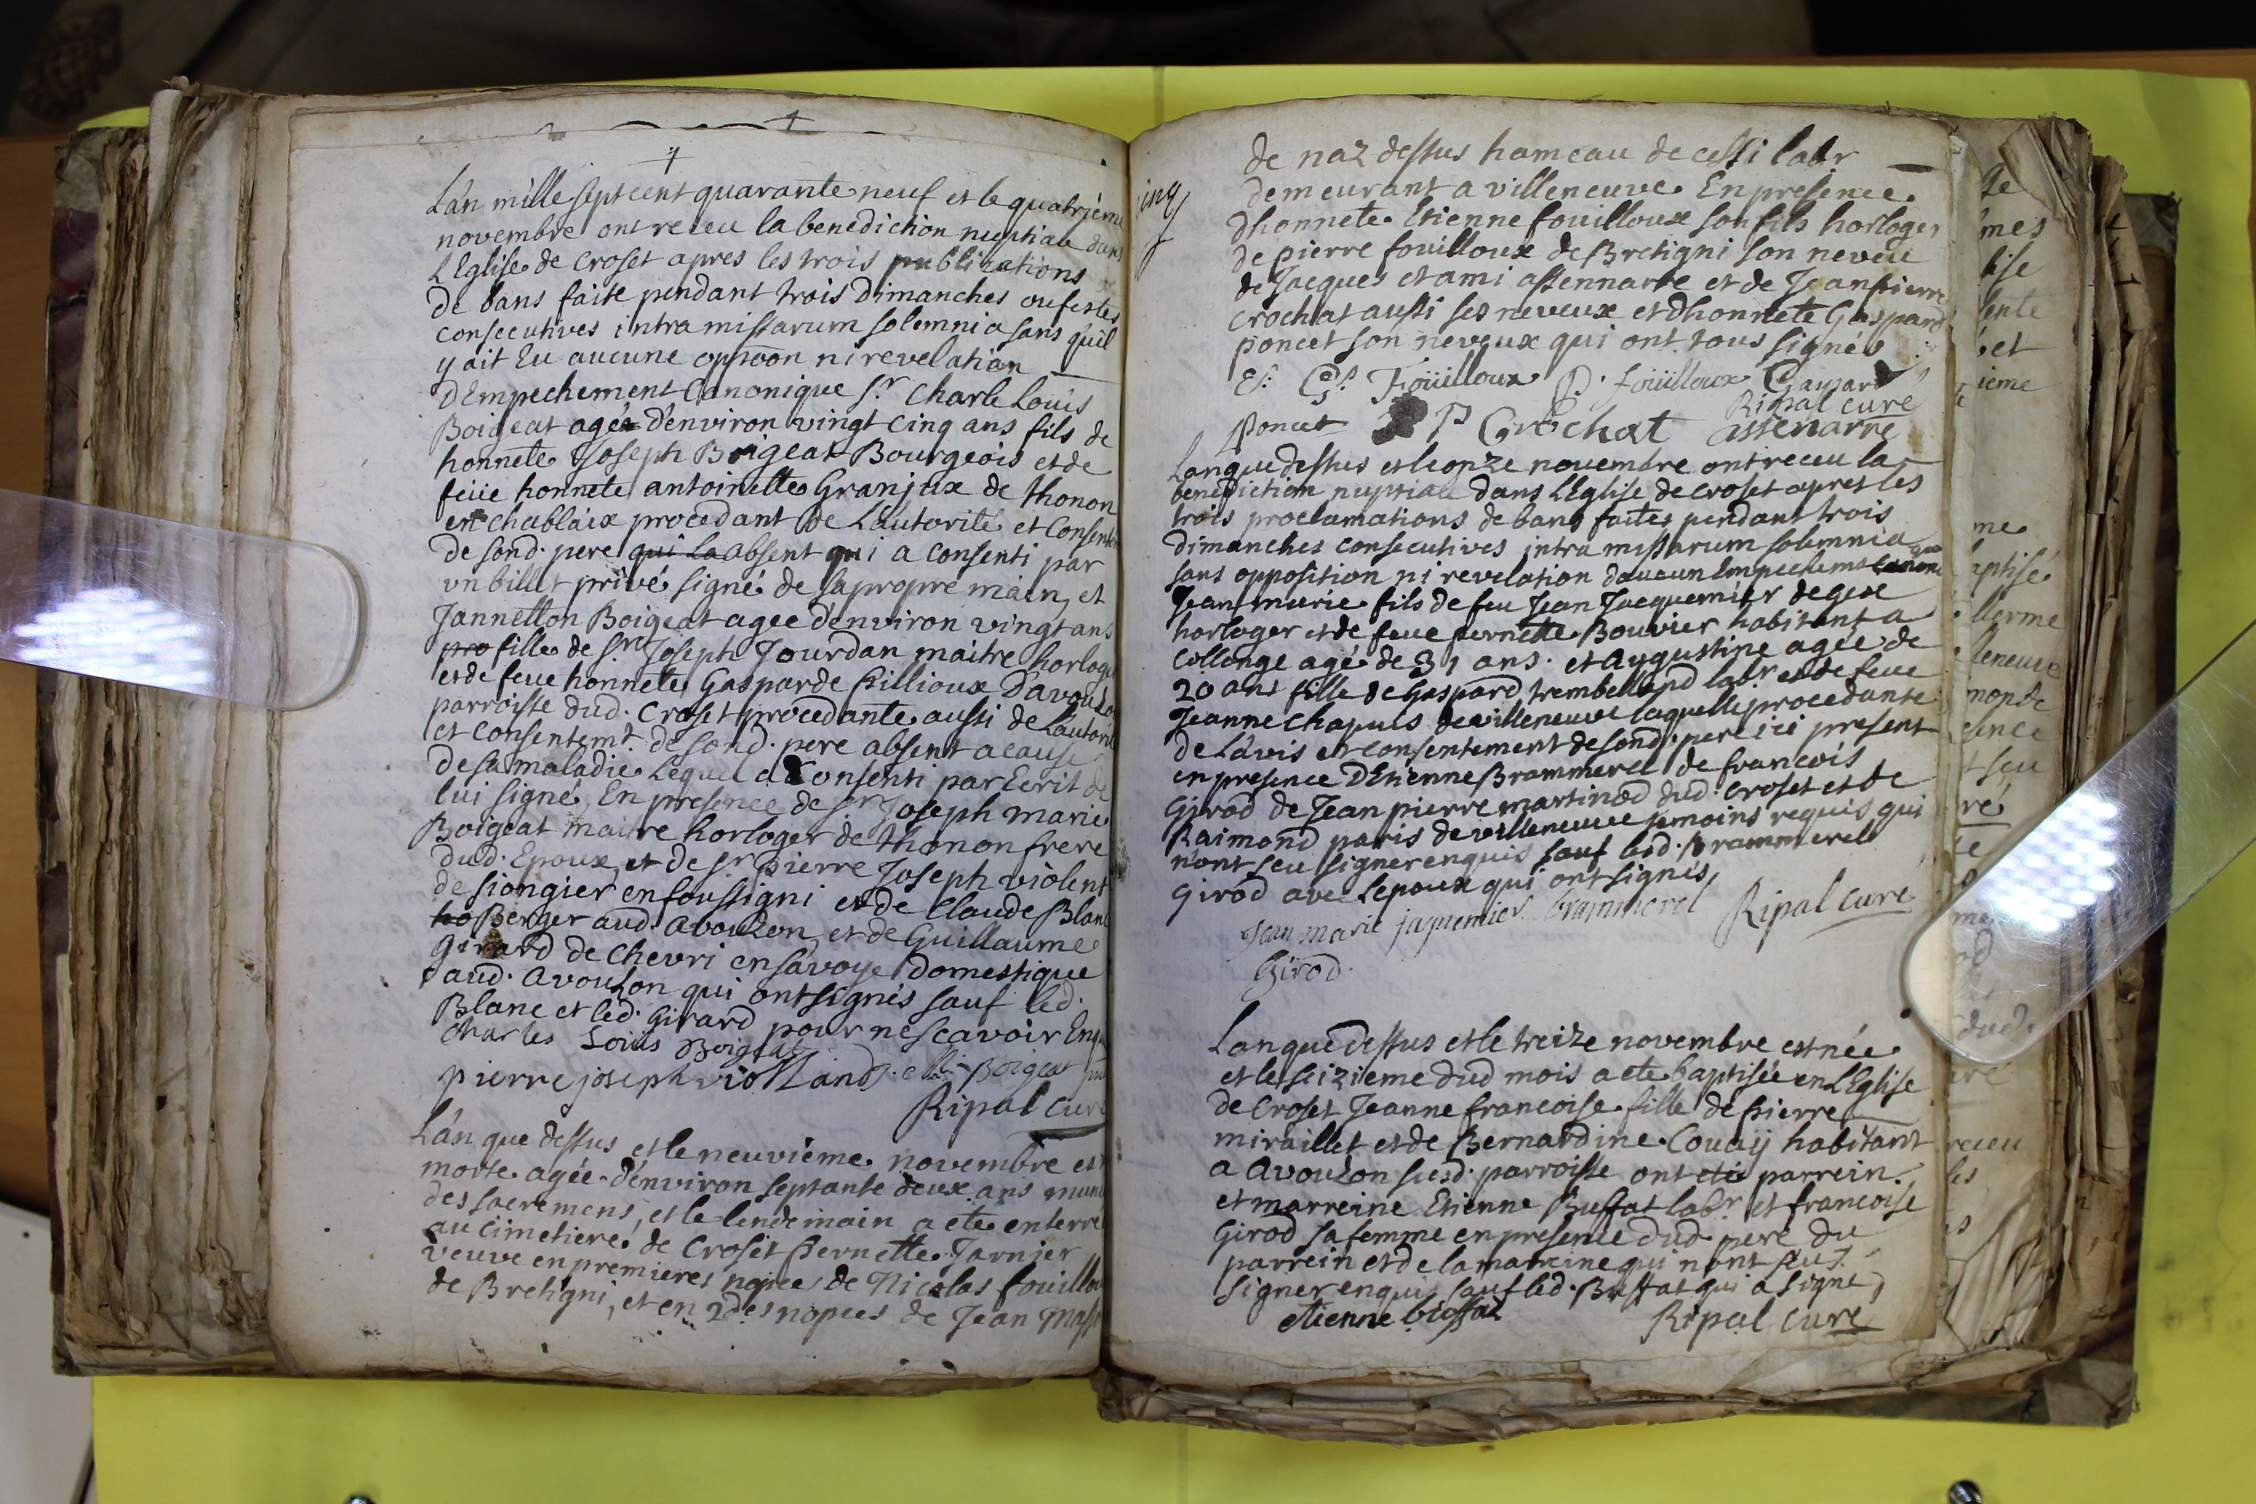 L'an mille sept cent quarante neuf et le quatriéme
novembre ont receu la benediction nuptiale dans
L'Eglise de Croset apres les trois publications
de bans faite pendant trois Dimanches ou festes
consecutives intra missarum solemnia sans qu'il
y ait Eu aucune oppoon ni revelation
D'Empechement Canonique Sr. Charle Louis
Boigeat agé d'environ vingt cinq ans fils de
honnete Joseph Boigeat Bourgeois et de
feüe honnete antoinette Granjux de thonon
en chablaix procedant de L'autorité et Consente
de sond. pere qui la absent qui a consenti par
un billet privé signé de sa propre main, et
Jannetton Boigeat agee d'environ vingt ans
pro fille de Sr. Joseph Jourdan maitre horloge
et de feue honnete Gasparde fillioux D'avouzon
parroisse dud. Croset procedante aussi de L'autorité
et Consentemt. de sond. pere absent a cause
de sa maladie Lequel a Consenti par Ecrit de
lui signé, En presence de Sr. Joseph marie
Boigeat maitre horloger de thonon frere
dud. Epoux, et de Sr. pierre Joseph violent
de siongier en foussigni et de Claude Blanc
ho Berger aud. avouzon, et de Guillaume
Girard de Chevri en savoye domestique
aud. avouzon qui ont signés sauf led.
Blanc et led. Girard pour ne scavoir Enquis
Charles Louis Boigeat
pierre joseph violland J. Boigeat
Ripal curé
L'an que dessus et le neuviéme novembre est
morte agée d'environ septante deux ans muni
des sacremens, et le lendemain a ete enterré
au cimetiere de Croset Pernette Jarnier
veuve en premieres nopces de Nicolas fouilloux
de Bretigni, et en 2des nopces de Jean Mass
cinq
de naz dessus hameau de cessi labr
demeurant a villeneuve. En presence
d'honnete Etienne fouilloux son fils horloger
de pierre fouilloux de Bretigni son neveu
de Jacques et ami assennarre et de Jean pierre
Crochat aussi ses neveux et d'honnete Gaspard
poncet son neveux qui ont tous signés
E. Fouilloux P. fouilloux Gaspard
Ripal curé
poncet J P Crochat assenarre
L'an que dessus et le onze novembre ont receu la
benediction nuptiale dans L'Eglise de croset apres les
trois proclamations de bans faites pendant trois
dimanches consecutives intra missarum solemnia
sans opposition ni revelation d'aucun Empechemt canoni
que
Jean marie fils de feu Jean Jacquemier de gex
horloger et de feue pernette Bouvier habitant a
Collonge agé de 31 ans. et Augustine agée de
20 ans fille de Gaspard trembelland labr et de feue
Jeanne Chapuis de villeneuve laquelle procedante
de L'avis et consentement de sond. pere ici present
en presence D'Etienne Brammerel de francois
Girod de Jean pierre martinod dud. Croset et de
Raimond paris de villeneuve temoins requis qui
n'ont seu signer enquis sauf led. Brammerel
Girod avec L'epoux qui ont signés
Jean marie jaquemier brammerel Ripal curé
Girod.
L'an que dessus et le treize novembre est née
et le seizieme dud mois a ete baptisée en L'Eglise
de Croset Jeanne francoise fille de pierre
miraillet et de Bernardine Couay habitant
a avouzon susd. parroisse ont eté parrein
et marreine Etienne Buffat labr. et francoise
Girod sa femme en presence dud. pere du
parrein et de la marreine qui n'ont seu
signer enquis sauf led. Buffat qui a signé
etienne buffat Ripal curé